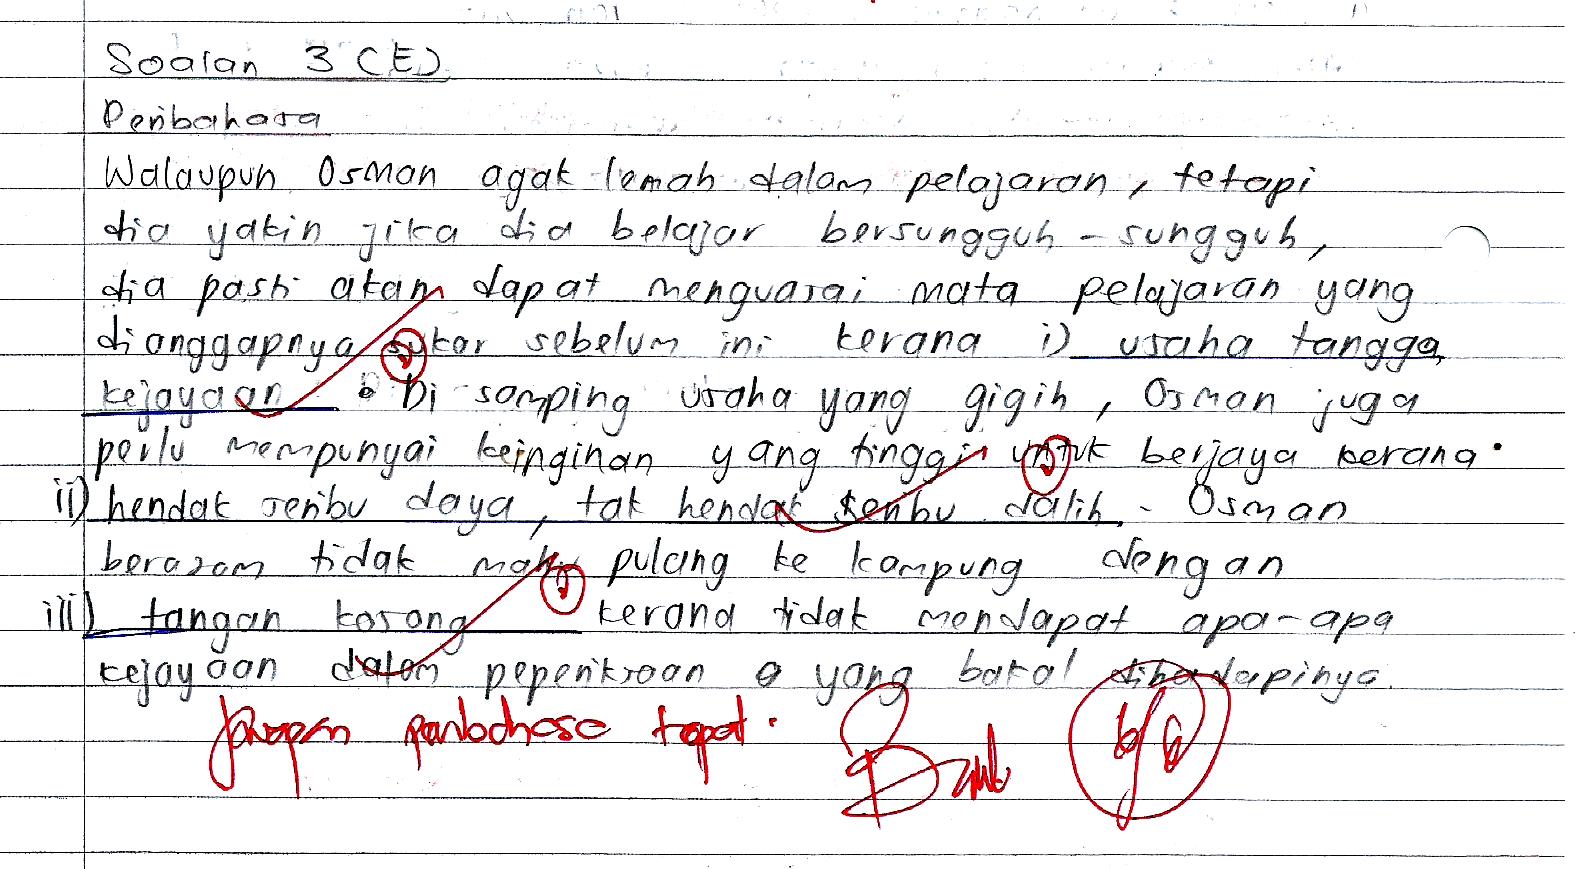 Soalan 3 (E)
Peribahasa
Walaupun Osman agak lemah dalam pelajaran, tetapi
dia yakin jika dia belajar bersungguh-sungguh,
dia pasti akan dapat menguasai mata pelajaran yang
dianggapnya sukar sebelum ini kerana i) usaha tangga
kejayaan. Di samping usaha yang gigih, Osman juga
perlu mempunyai keinginan yang tinggi untuk berjaya kerana
ii) hendak seribu daya, tak hendak seribu dalih. Osman
berazam tidak mahu pulang ke kampung dengan
iii) tangan kosong kerana tidak mendapat apa-apa
kejayaan dalam peperiksaan yang bakal dihadapinya.
Jawapan peribahasa tepat.
6/6